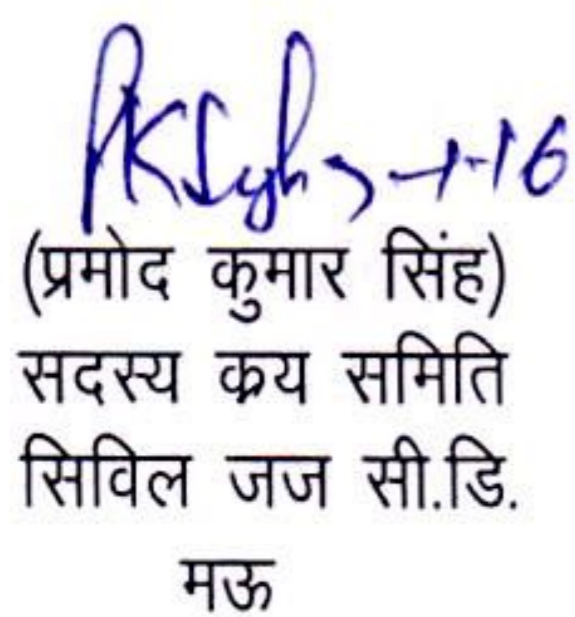 PKSingh
(प्रमोद कुमार सिंह)
सदस्य क्रय समिति
सिविल जज सी.डि.
मऊ